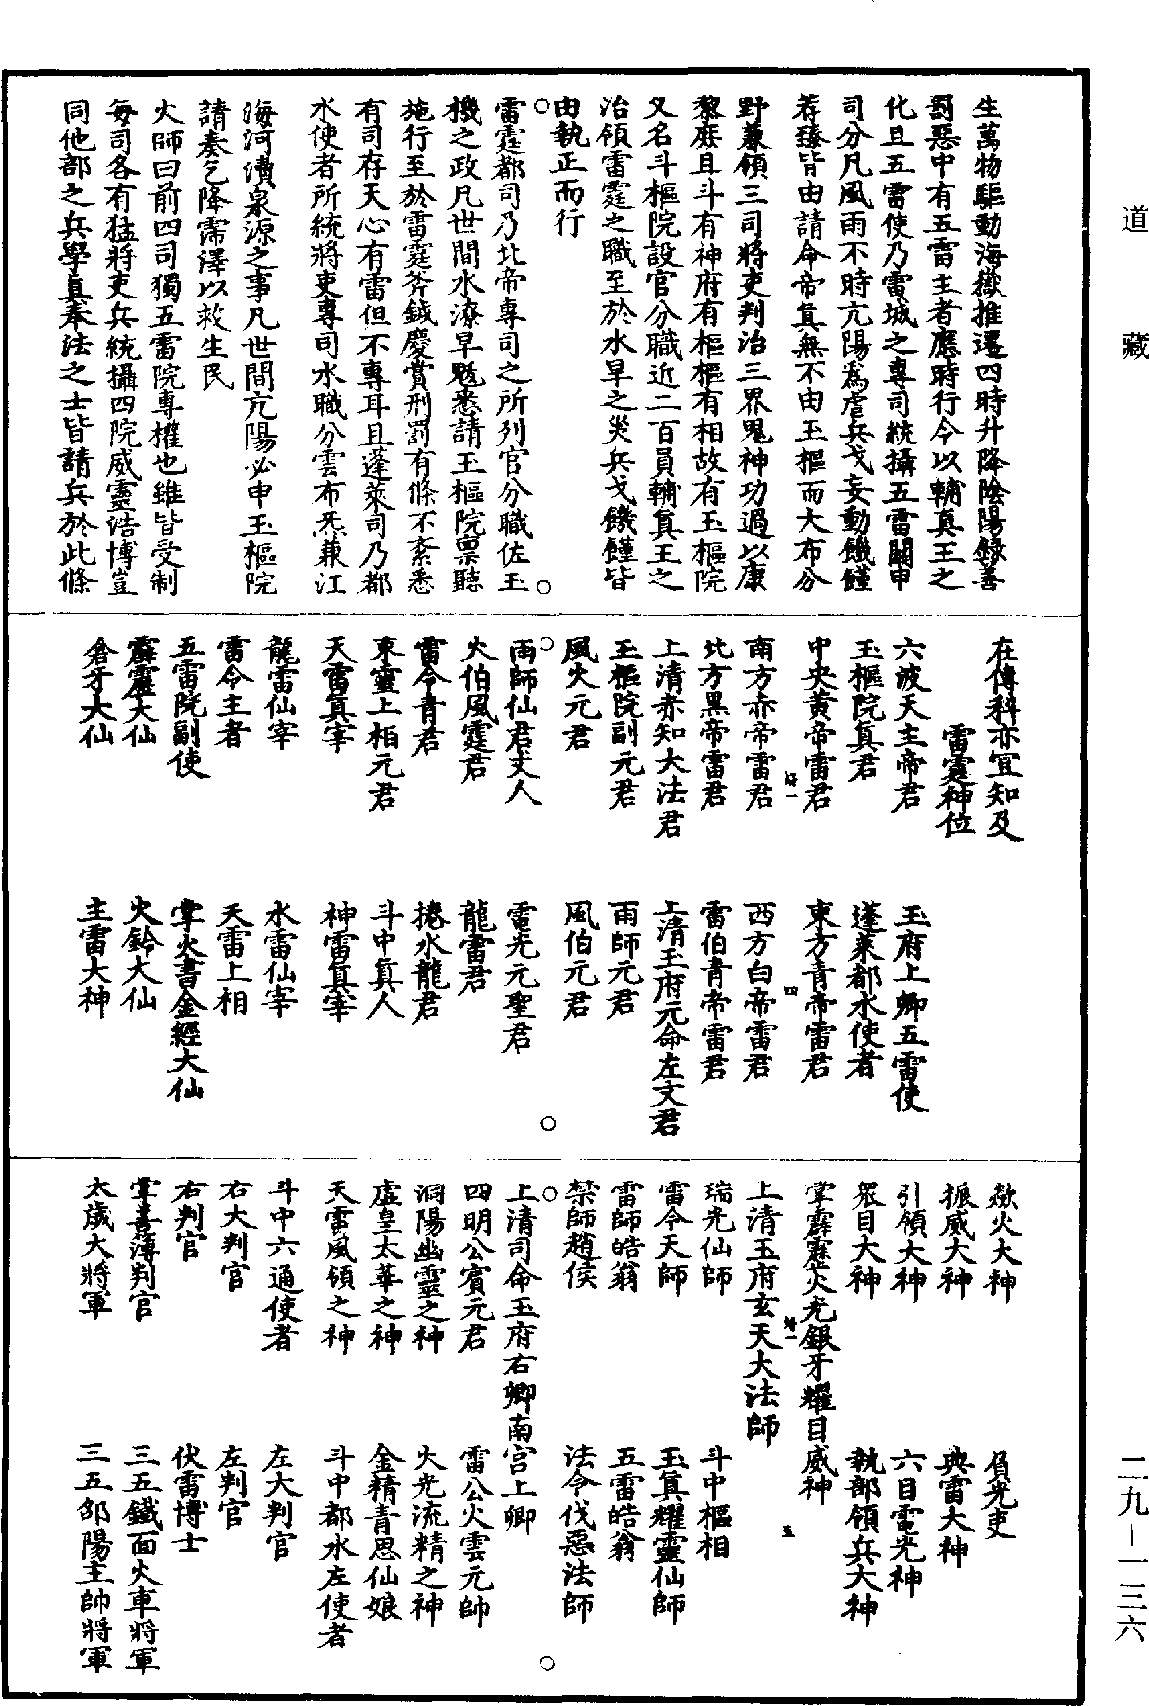 道藏
二九－一三六
生萬物驅動海嶽推遷四時升降陰陽錄善
罰惡中有五雷主者應時行令以輔真王之
化且五雷使乃雷城之專司統攝五雷關申
司分凡風雨不時亢陽為虐兵戈妄動饑饉
荐臻皆由請命帝真無不由玉樞而大布分
野兼領三司將吏判治三界鬼神功過以康
黎庶且斗有神府有樞樞有相故有玉樞院
又名斗樞院設官分職近二百員輔真王之
治領雷霆之職至於水旱之災兵戈饑饉皆
由執正而行
雷霆都司乃北帝專司之所列官分職佐玉
機之政凡世間水潦旱魃悉請玉樞院稟聽
施行至於雷霆斧鉞慶賞刑罰有條不紊悉
有司存天心有雷但不專耳且蓬萊司乃都
水使者所統將吏專司水職分雲布炁兼江
海河瀆泉源之事凡世間亢陽必申玉樞院
請奏乞降霈澤以救生民
火師曰前四司獨五雷院專權也雖皆受制
每司各有猛將吏兵統攝四院威靈浩博豈
同他部之兵學真奉法之士皆請兵於此條
在傳科亦宜知及
雷霆神位
六波天主帝君　玉府上卿五雷使
玉樞院真君　蓬萊都水使者
中央黃帝雷君　東方青帝雷君
南方赤帝雷君　西方白帝雷君
北方黑帝雷君　雷伯青帝雷君
上清赤知大法君　上清玉府元命左文君
玉樞院副元君　雨師元君
風火元君　風伯元君
雨師仙君丈人　電光元聖君
火伯風霆君　龍雷君
雷令青君　捲水龍君
東靈上相元君　斗中真人
天雷真宰　神雷真宰
龍雷仙宰　水雷仙宰
雷令主者　天雷上相
五雷院副使　掌火書金經大仙
霹靂大仙　火鈴大仙
倉牙大仙　主雷大神
欻火大神　負光吏
振威大神　典雷大神
引領大神　六目電光神
眾目大神　執部領兵大神
掌霹靂火光銀牙耀目威神
上清玉府玄天大法師
瑞光仙師　斗中樞相
雷令天師　玉真耀靈仙師
雷師皓翁　五雷皓翁
禁師趙侯　法令伐惡法師
上清司命玉府右卿南宮上卿
四明公賓元君　雷公火雲元帥
洞陽幽靈之神　火光流精之神
虛皇太華之神　金精青思仙娘
天雷風領之神　斗中都水左使者
斗中六通使者　左大判官
右大判官　左判官
右判官　伏雷博士
掌善簿判官　三五鐵面火車將軍
太歲大將軍　三五邵陽主帥將軍